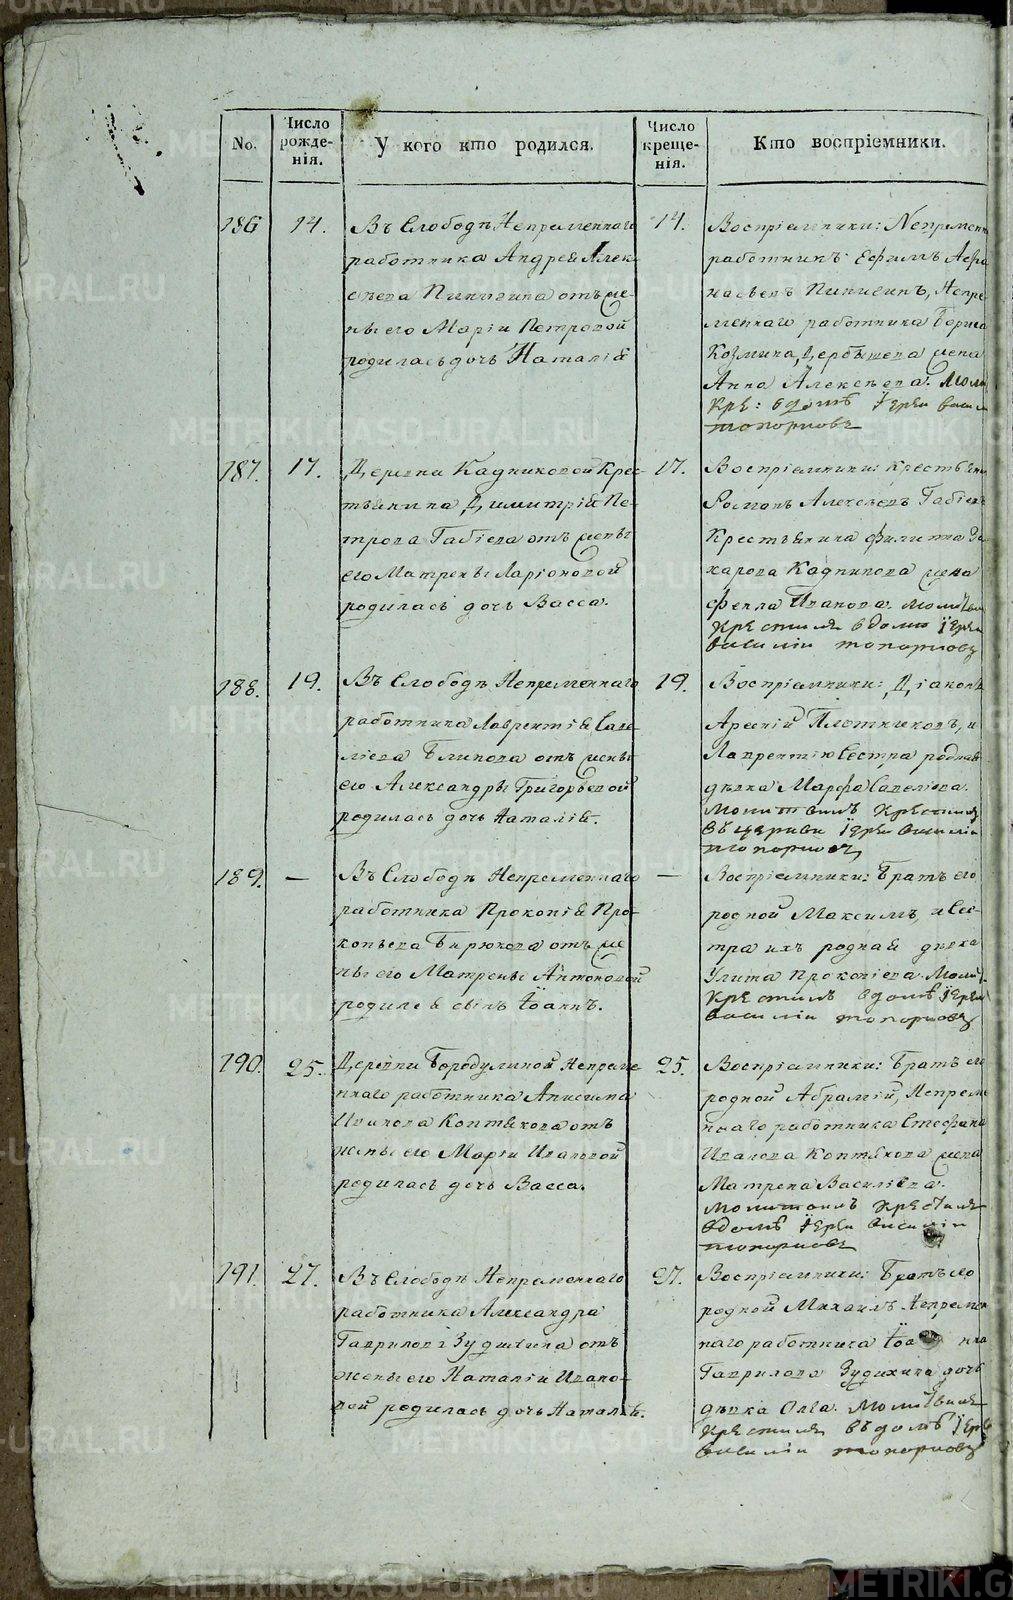 No.
Число рожде-нія.
У кого кто родился.
Число креще-нія.
Кто воспріемники.
186
14.
Въ Слободѣ Непременнаго
работника Андрея Алек-
сѣева Пинигина отъ же-
ны его Маріи Петровой
родилась дочь Наталія
14.
Воспріемники: Непремен
работникъ Ефимъ Афа
насьевъ Пинигинъ, Непре
меннаго работника Бориса
Козмина Дербышева жена
Анна Алексѣева. Моли
Кре: вдомѣ Іерей Васи
Топорковъ
187.
17.
Деревни Кадниковой Крес-
тьянина Димитрія Пе-
трова Габіева отъ жены
его Матрены Ларіоновой
родилась дочь Васса.
17.
Воспріемники: Крестьяни
Романъ Алексѣевъ Габіевъ
Крестьянина Филиппа За
харова Кадникова жена
Фекла Иванова. Молитви
Крестилъ вдомѣ Іерей
Василіи Топорковъ
188.
19.
Въ Слободѣ Непременнаго
работника Лаврентія Саве
ліева Блинова отъ жены
его Александры Григорьевой
родилась дочь Наталія.
19.
Воспріемники: Діаконъ
Арсеній Плотниковъ, и
Лаврентію Сестра родная
дѣвка Марфа Савеліева.
Молитвилъ Крестилъ
Въ церкви Іерей Василіи
Топорковъ
189.
—
Въ Слободѣ Непременнаго
работника Прокопія Про-
копьева Бирюкова отъ же
ны его Матрены Антоновой
родился сынъ Іоаннъ.
—
Воспріемники: Братъ его
родной Максимъ, и Сес-
тра ихъ родная дѣвка
Улита Прокопіева. Молит
Крестилъ вдомѣ Іерей
Василіи Топорковъ
190.
25.
Деревни Бородулиной Непреме
ннаго работника Анисима
Иванова Коптякова отъ
жены его Маріи Ивановой
родилась дочь Васса.
25.
Воспріемники: Братъ его
родной Абрамій, Непреме
ннаго работника Стефана
Иванова Коптякова жена
Матрена Василіева.
Молитвилъ Крестилъ
вдомѣ Іерей Василіи
Топорковъ
191.
27.
Въ Слободѣ Непременнаго
работника Александра
Гаврилова Зудихина отъ
жены его Наталіи Ивано-
вой родилась дочь Наталія.
27.
Воспріемники: Братъ его
родной Михаилъ Непремен
наго работника Іоанна
Гаврилова Зудихина дочь
дѣвка Олга. Молитвилъ
Крестилъ въдомѣ Іерей
Василіи Топорковъ
METRIKI.GASO-URAL.RU